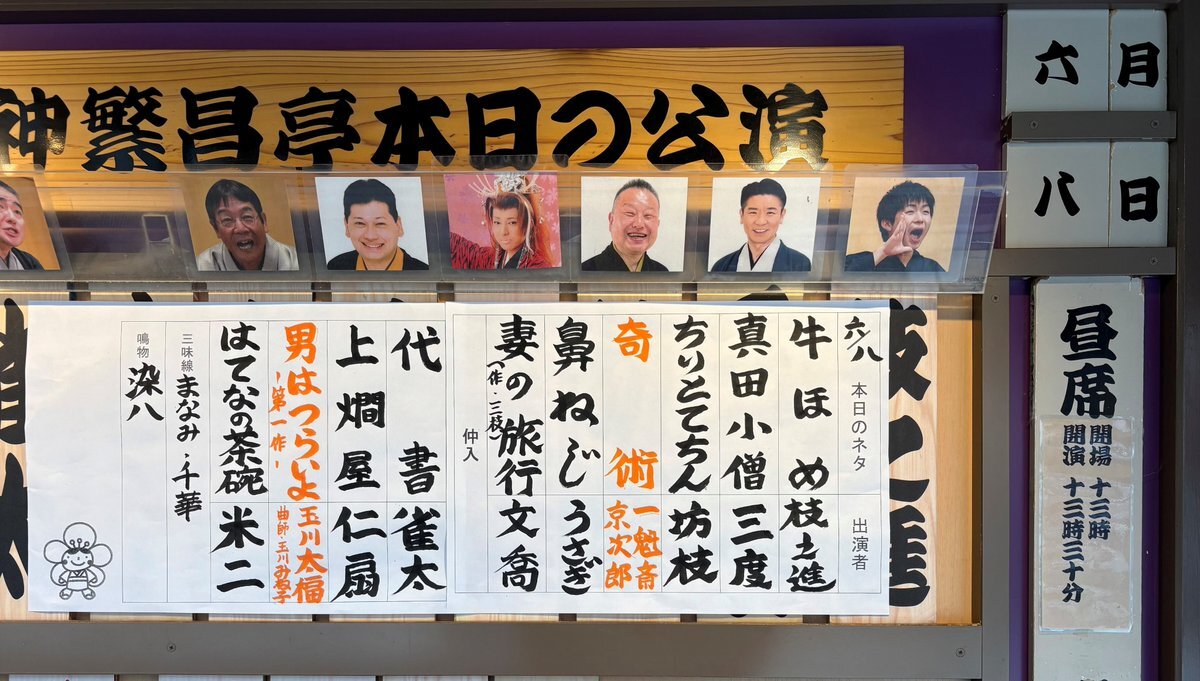 神繁昌亭本日の公演
六月
八日
昼席
開場 十三時
開演 十三時三十分
六/八 本日のネタ 出演者
牛ほめ 枝之進
真田小僧 三度
ちりとてちん 坊枝
奇術 一魁斎 京次郎
鼻ねじ うさぎ
妻の旅行 (作・三枝) 文喬
仲入
代書 雀太
上燗屋 仁扇
男はつらいよ -第一作- 玉川太福 曲師・玉川みね子
はてなの茶碗 米二
三味線 まなみ・千華
鳴物 染八